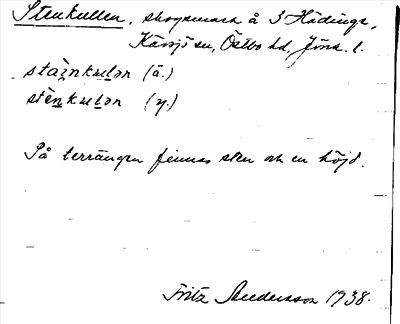 Stenkullen, skogsmark å 3 Hädinge,
Kävsjö sn, Östbo hd, Jönk. l.
sta͕i̯nkuļən (ä.)
stènkuļən (y.)
På terrängen finnas sten och en höjd.
Fritz Andersson 1938.